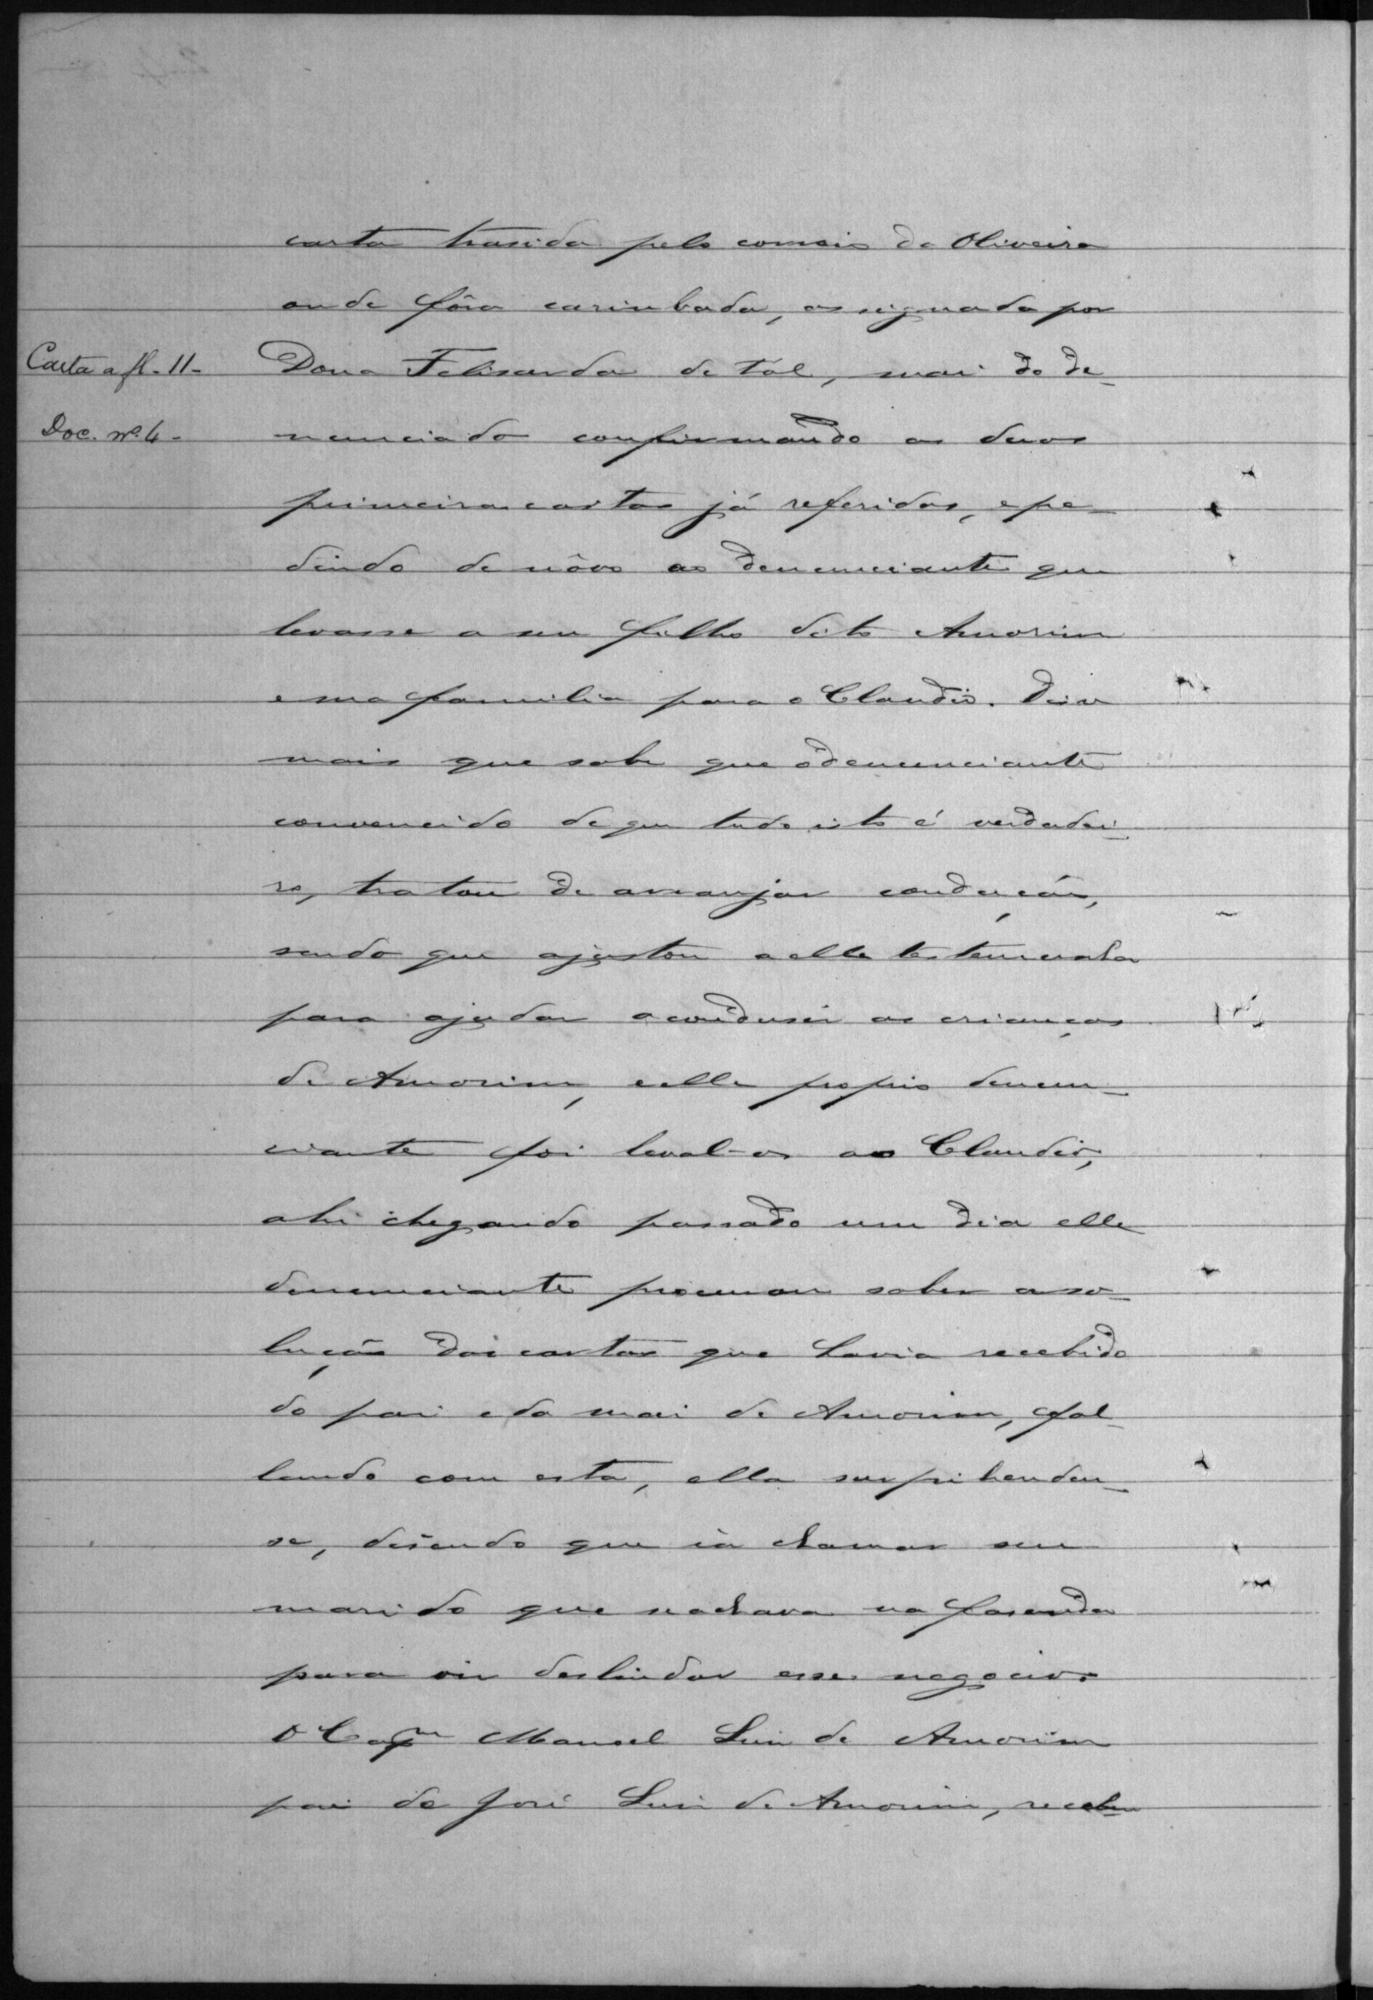 carta trasida pelo correio da Oliveira
onde fôra carimbada, assignada por
Carta a fl. 11-
Dona Felisarda de tal, mai do de-
Doc. nº 4-
nunciado confirmando as duas
primeiras cartas já referidas, e pe-
dindo de nôvo ao denunciante que
levasse a seu filho dito Amorim
e sua familia para o Claudio. Disse
mais que sabe que o denunciante
convencido de que tudo isto é verdadei-
ro, tratou de arranjar condução,
sendo que ajustou a elle testemunha
para ajudar a condusir as crianças
de Amorim, e elle proprio denun-
ciante foi leval-os ao Claudio,
ahi chegando passado um dia elle
denunciante procurou saber a so-
lução das cartas que havia recebido
do pai e da mai de Amorim, fal-
lando com esta, ella surprihendeu-
se, disendo que ia chamar seu
marido que s'achava na fasenda
para vir deslindar esse negocio.
O Capm Manoel Luis de Amorim
pai de José Luis de Amorim, recebeu